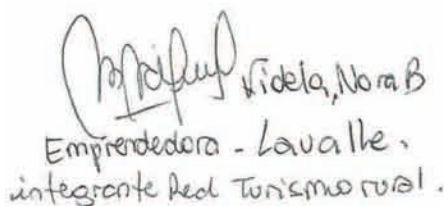 Videla, Nora B
Emprendedora - Lavalle.
integrante Red Turismo rural.